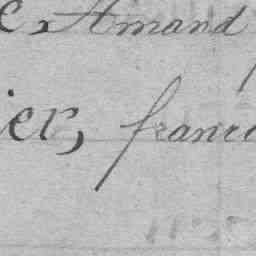 e, Amand
ier, franc